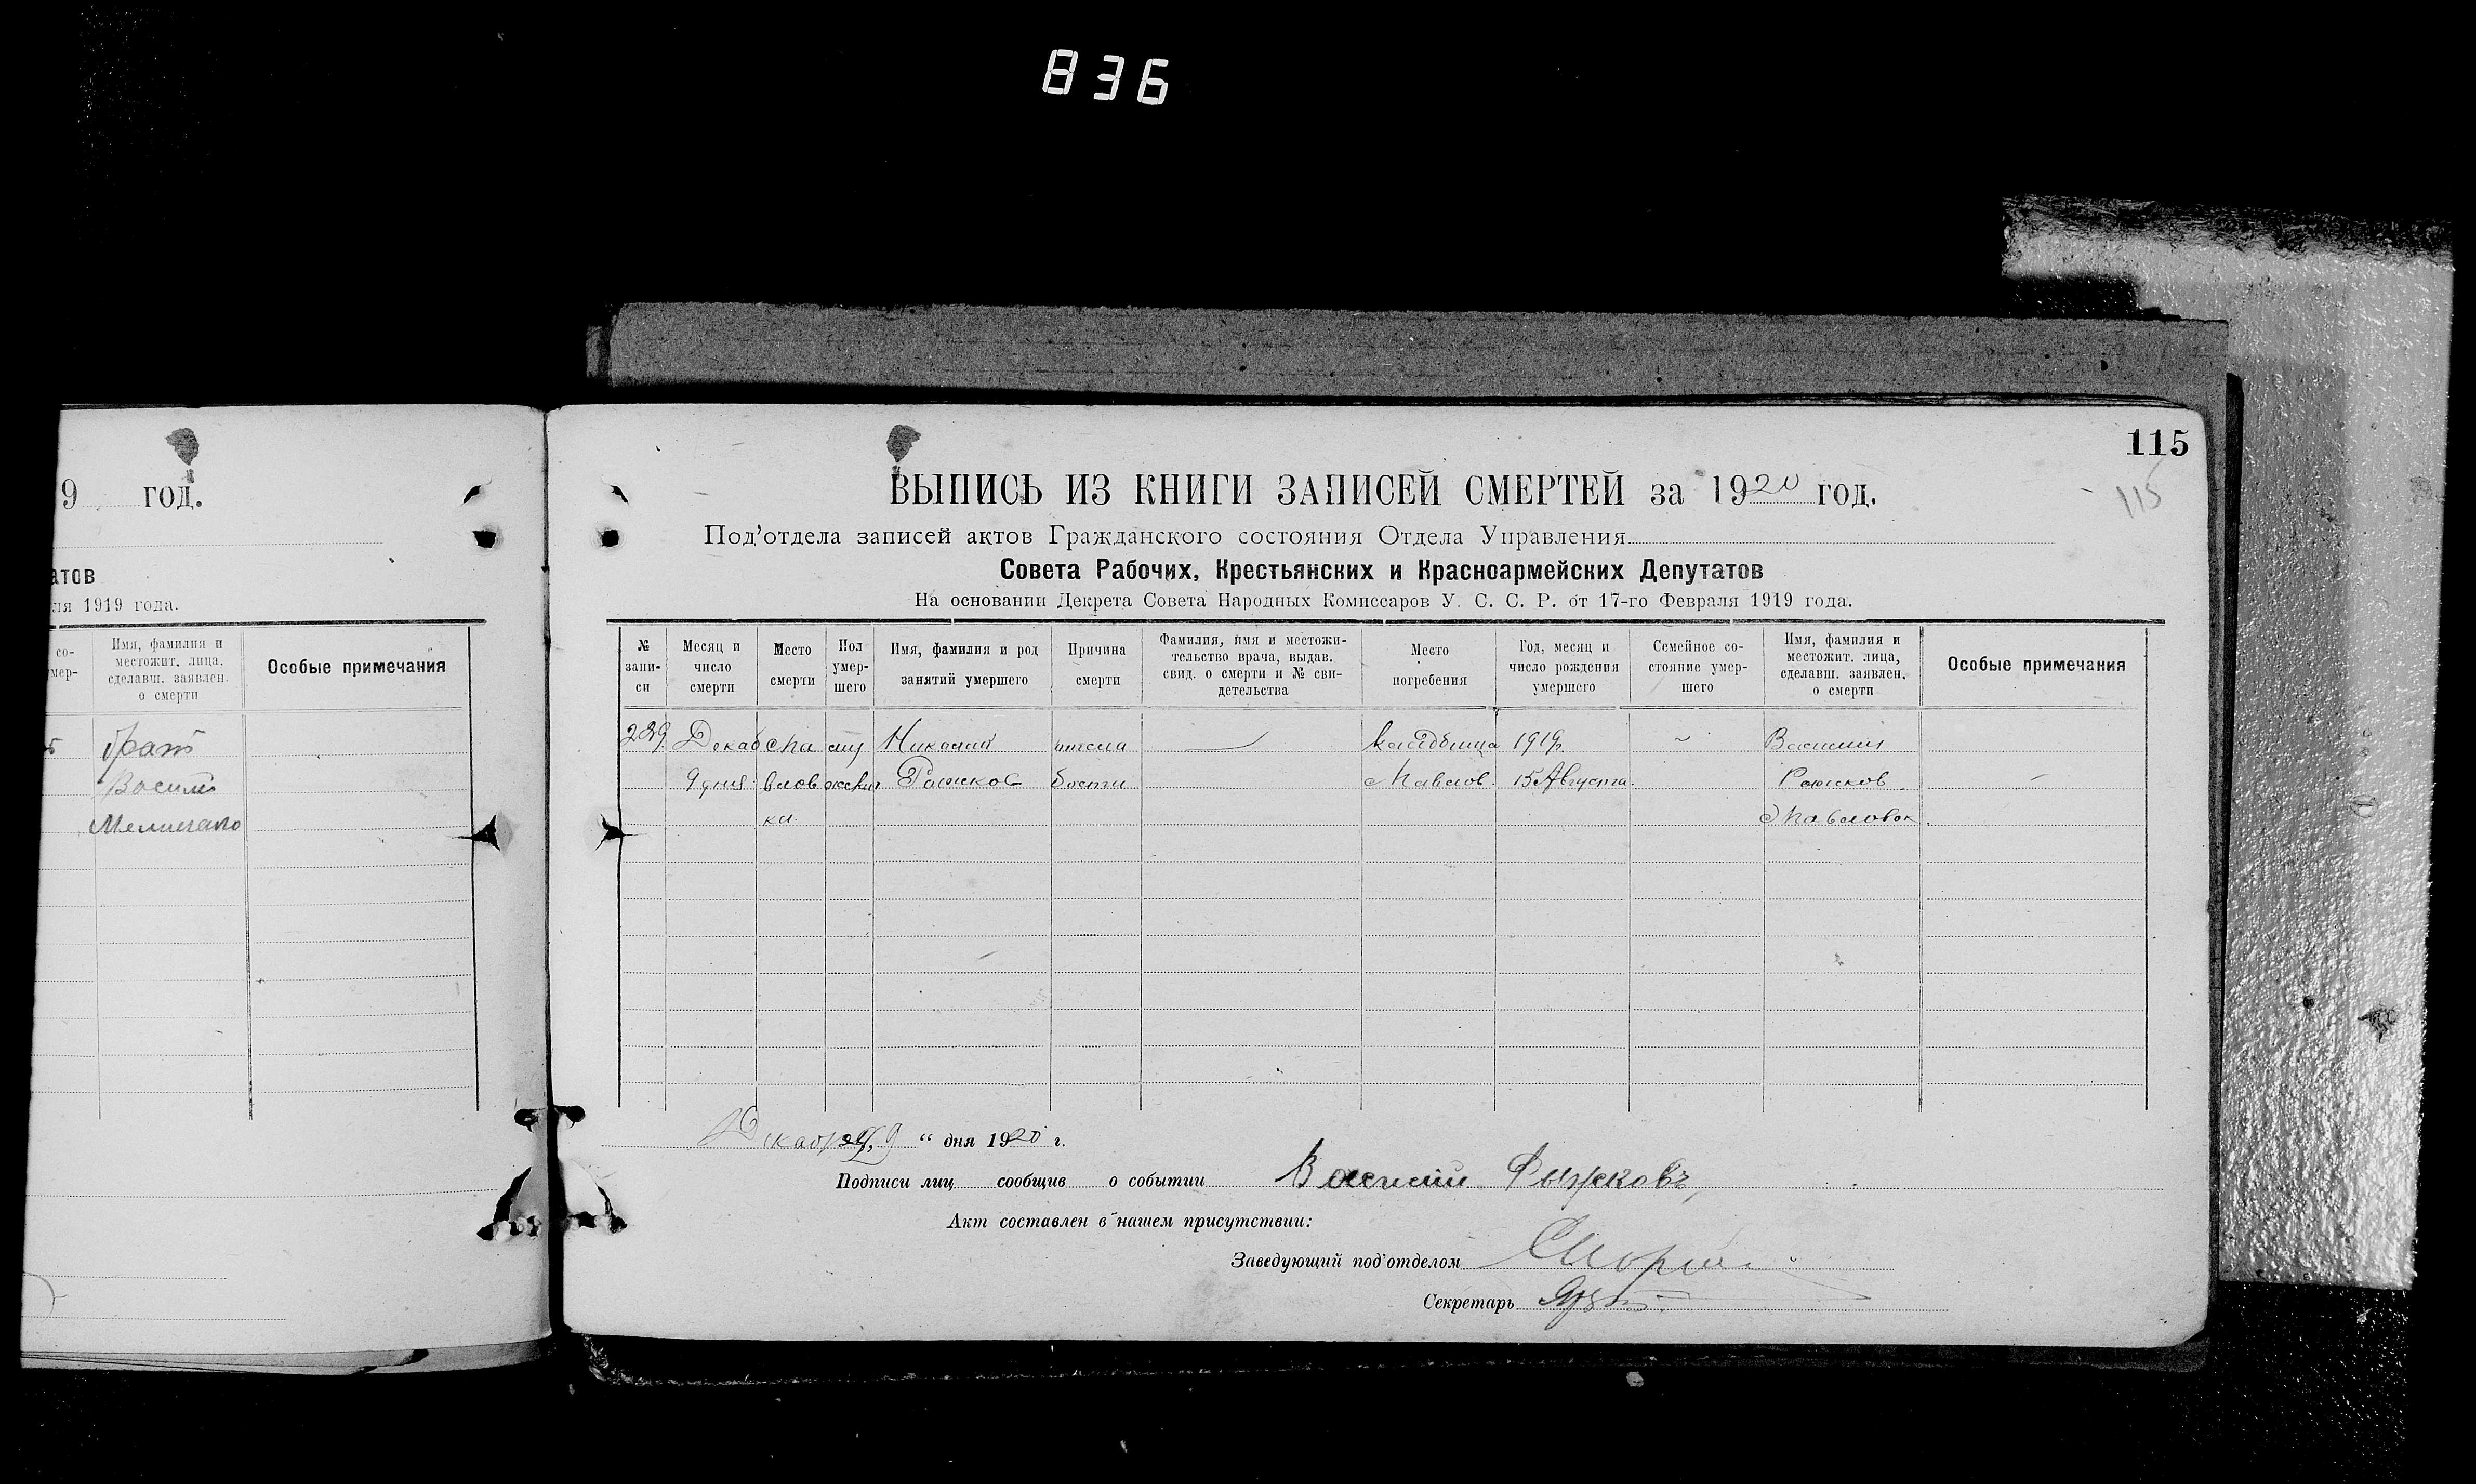 836
9 год.
атов
ля 1919 года.
со-
мер-
Имя, фамилия и
местожит. лица,
сделавш. заявлен.
о смерти
Особые примечания
брат
115
115
ВЫПИСЬ ИЗ КНИГИ ЗАПИСЕЙ СМЕРТЕЙ за 1920 год.
Под'отдела записей актов Гражданского состояния Отдела Управления
Совета Рабочих, Крестьянских и Красноармейских Депутатов
На основании Декрета Совета Народных Комиссаров У. С. С. Р. от 17-го Февраля 1919 года.
№
запи-
си
Месяц и
число
смерти
Место
смерти
Пол
умер-
шего
Имя, фамилия и род
занятий умершего
Причина
смерти
Фамилия, имя и местожи-
тельство врача, выдав.
свид. о смерти и № сви-
детельства
Место
погребения
Год, месяц и
число рождения
умершего
Семейное со-
стояние умер-
шего
Имя, фамилия и
местожит. лица,
сделавш. заявлен.
о смерти
Особые примечания
239 Декаб Па муж Николай Кладбища 1919г. Василий
9 дня влов ский Рыжков Павлов 15 Августа Рыжков
ка Павловка
Декабря 9 " дня 1920 г.
Подписи лиц сообщив о событии Василий Рыжковъ
Акт составлен в нашем присутствии:
Заведующий под'отделом
Секретарь